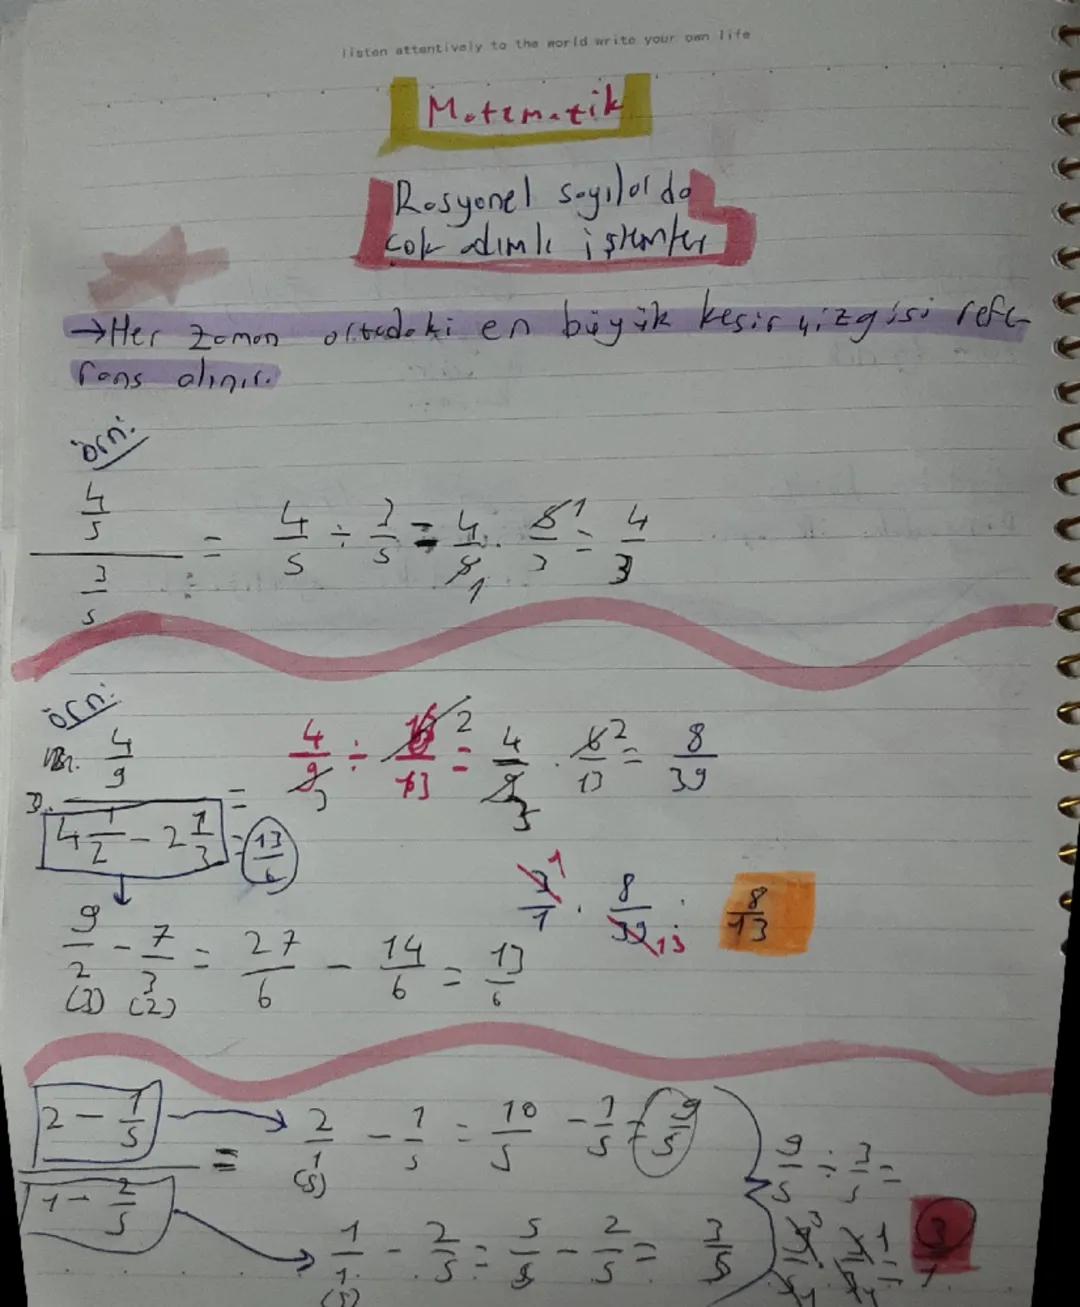 listen attentively to the world write your own life
Matematik
Rasyonel sayılarda
çok adımlı işlemler
→Her zaman ortadaki en büyük kesir çizgisi refe-
rans alınır.
örn:
4/5 / 3/5 = 4/5 ÷ 3/5 = 4/5 . 5/3 = 4/3
örn:
4/9 / 4 1/2 - 2 1/3 = 13/6
4/9 ÷ 13/6 = 4/9 . 6/13 = 8/39
3/1 . 8/39 : 8/13
9/2 - 7/3 = 27/6 - 14/6 = 13/6
(3) (2)
2 - 1/5 / 1 - 2/5 =
2/1 - 1/5 = 10/5 - 1/5 = 9/5
(5)
9/5 ÷ 3/5 =
1/1 - 2/5 = 5/5 - 2/5 = 3/5
(5)
3